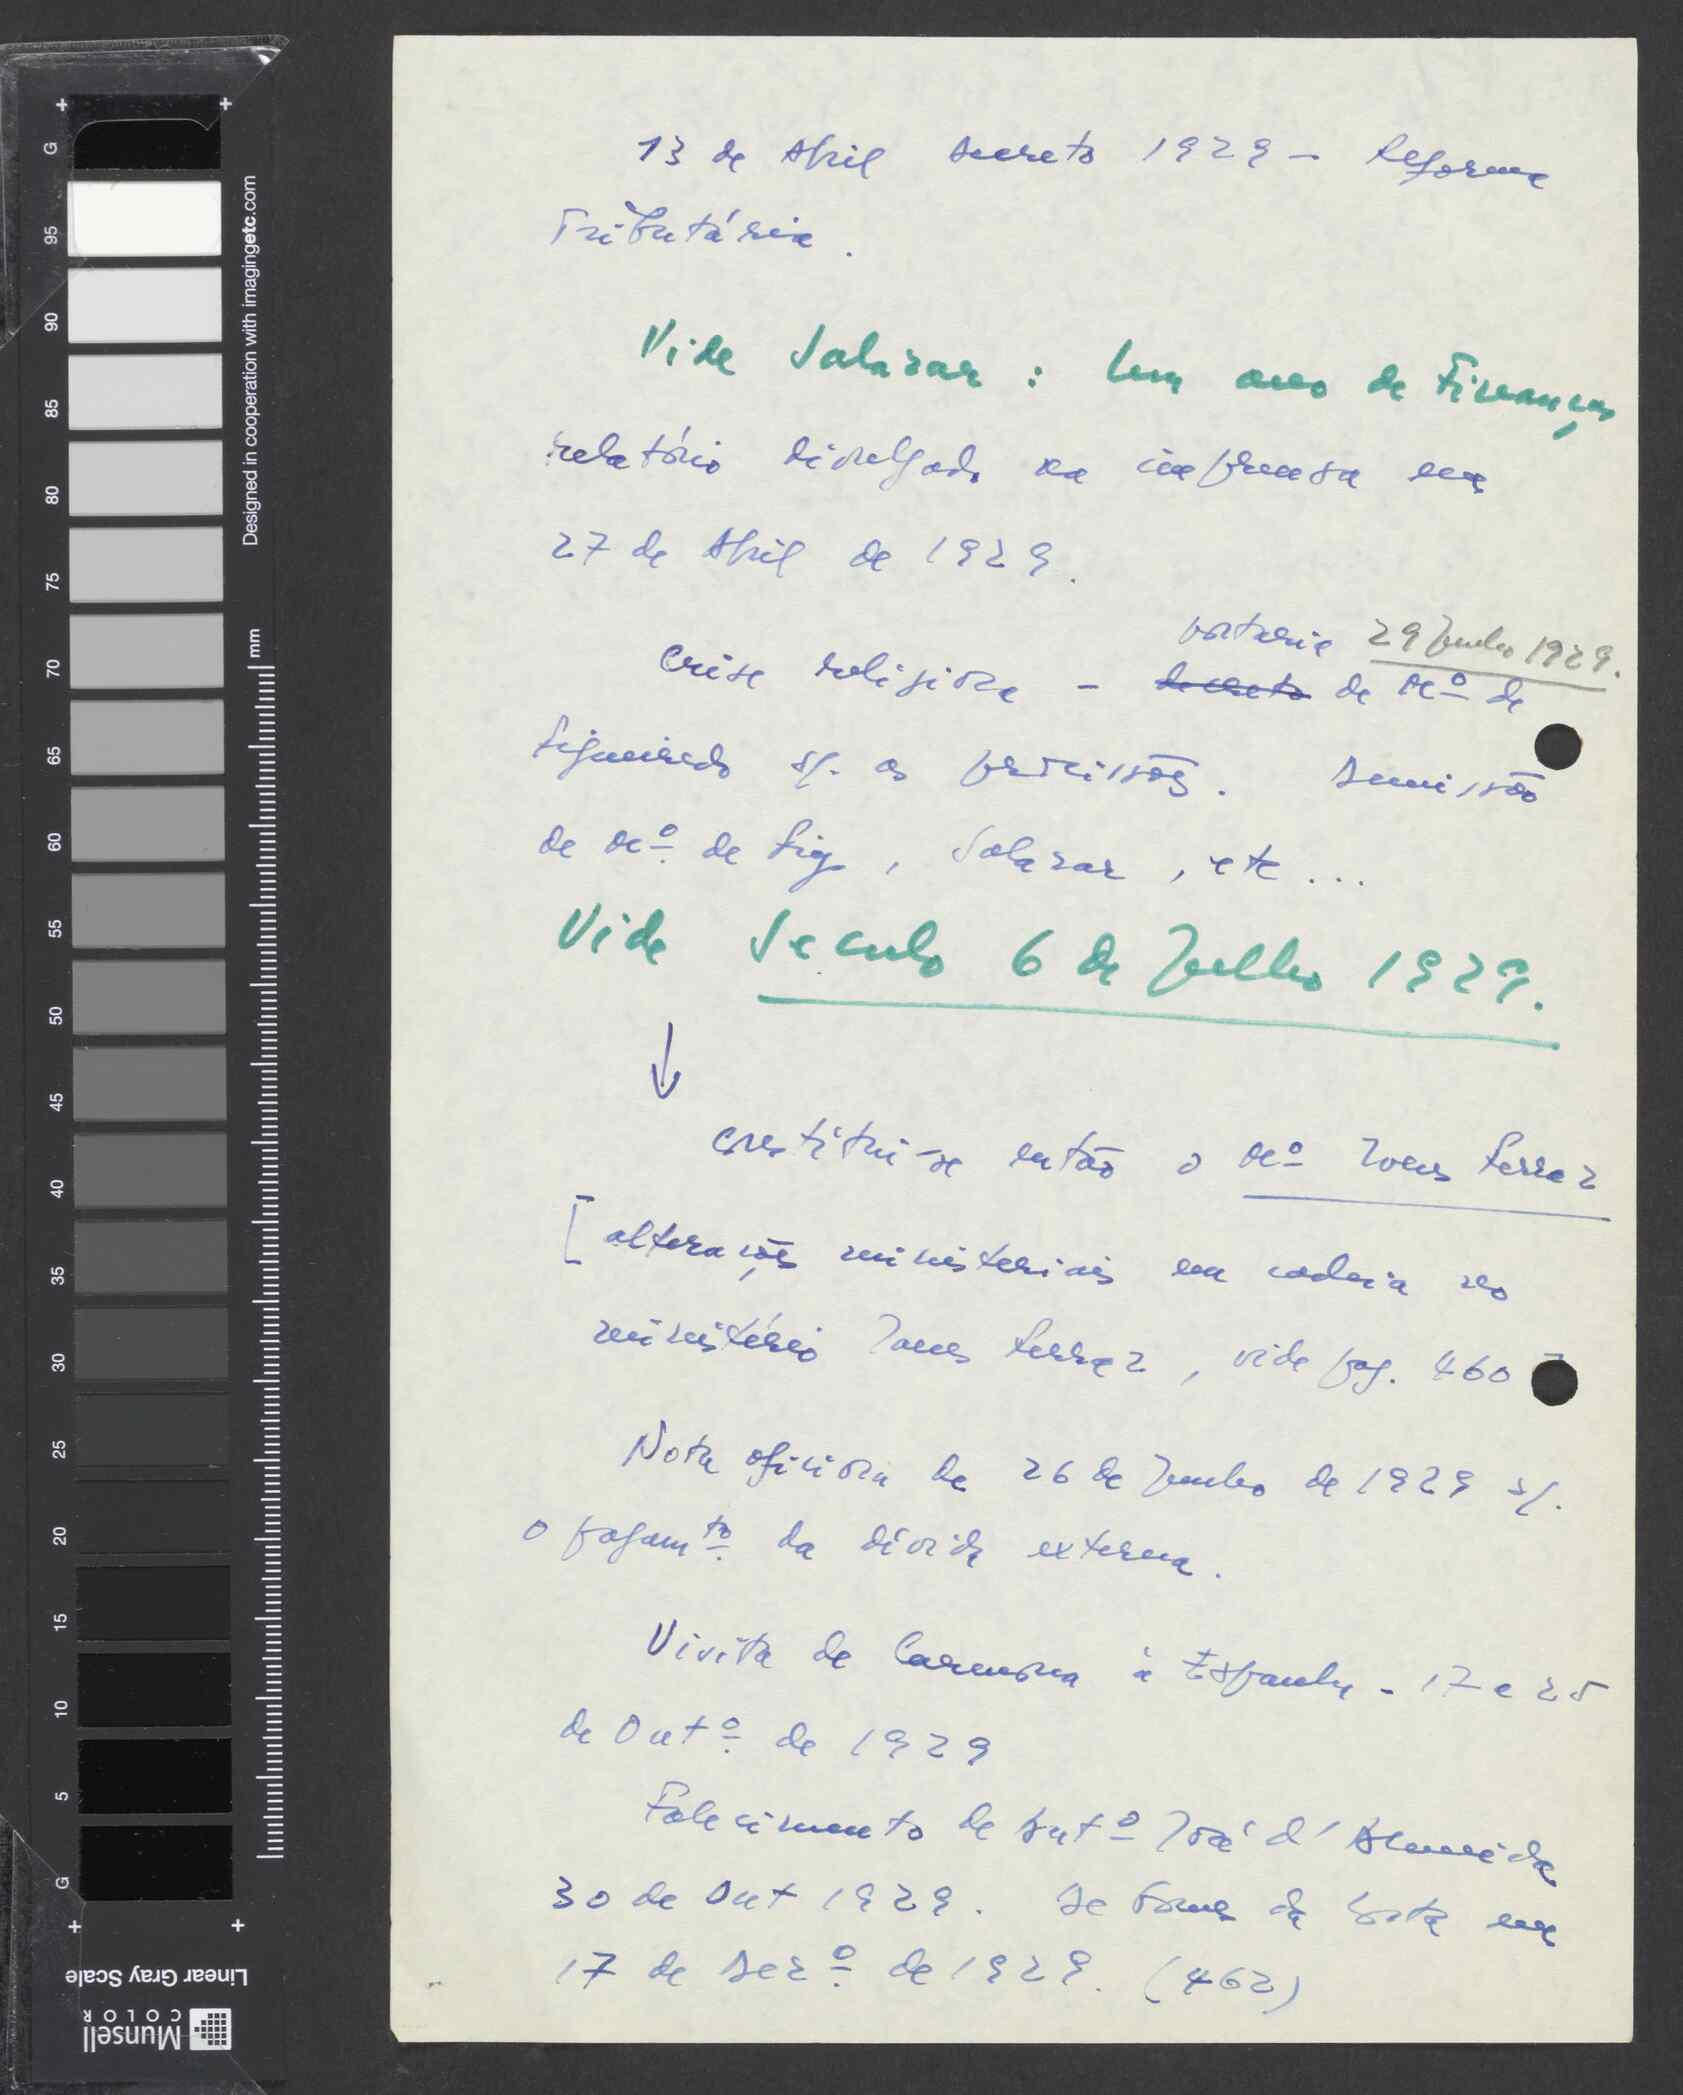 13 de Abril Decreto 1929 – Reforma
Tributária.
Vide Salazar : Um ano de Finanças
relatório divulgado na imprensa em
27 de Abril de 1929.
portaria 29 Junho 1929.
Crise religiosa – decreto de Mº de
Figueiredo s/. as procissões. Demissão
de Mº. de Fig, Salazar, etc...
Vide Seculo 6 de Julho 1929.
↓
constitui-se então o Mº Ivens Ferraz
[ alterações ministeriais em cadeia no
ministério Ivens Ferraz, vide pag. 460
Nota oficiosa de 26 de Junho de 1929 s/.
o pagamtº. da dívida externa.
Visita de Carmona à Espanha – 17 e 25
de Outº. de 1929
Falecimento de Antº José d'Almeida
30 de Out 1929. de Gomes da Costa em
17 de Dezº. de 1929. (462)
Designed in cooperation with imagingetc.com
mm
G
95
90
85
80
75
70
65
60
55
50
45
40
35
30
25
20
15
10
5
G
Linear Gray Scale
Munsell
COLOR